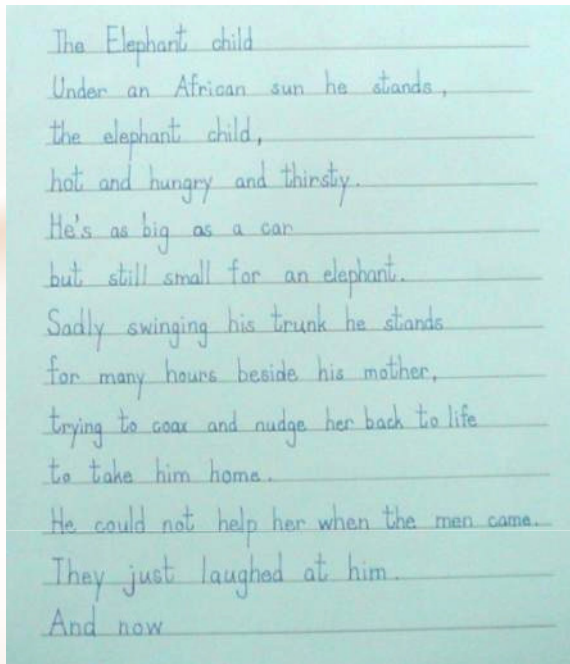 The Elephant child
Under an African sun he stands,
the elephant child,
hot and hungry and thirsty.
He's as big as a car
but still small for an elephant.
Sadly swinging his trunk he stands
for many hours beside his mother,
trying to coax and nudge her back to life
to take him home.
He could not help her when the men came.
They just laughed at him.
And now